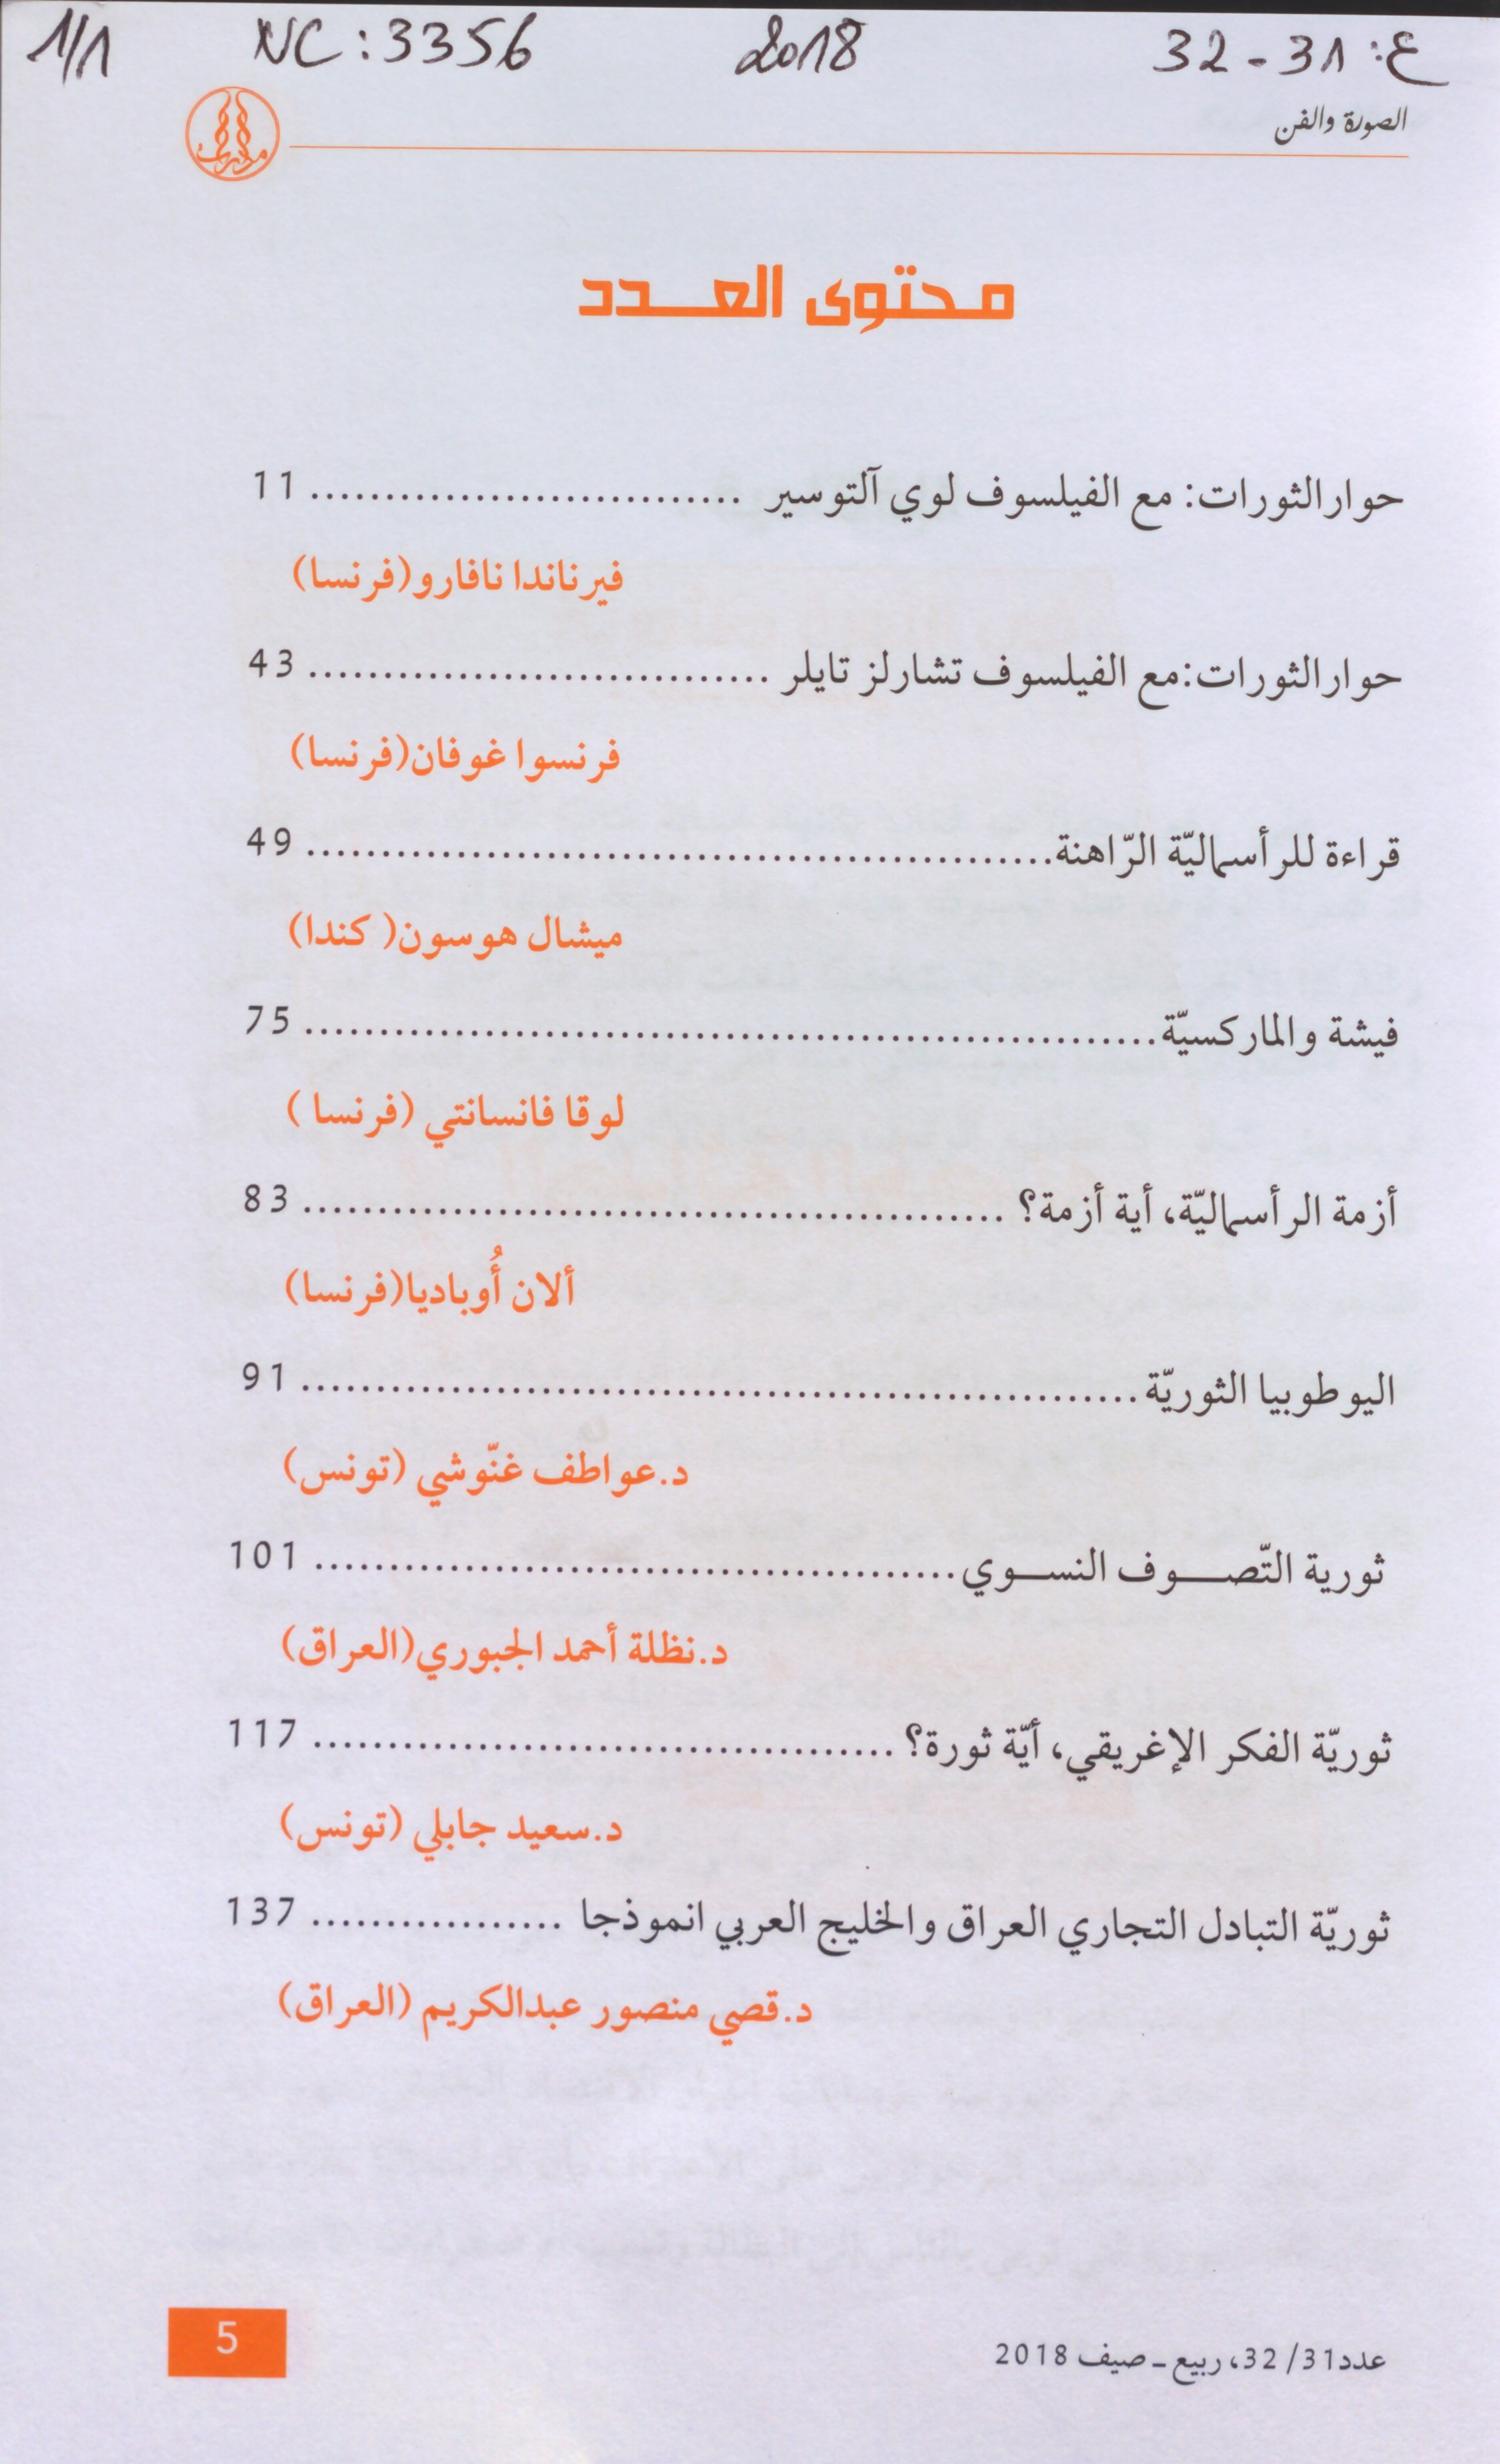 ع: 31 - 32 2018 NC: 3356 1/1
الصورة والفن
محتوى العـدد
حوار الثورات: مع الفيلسوف لوي آلتوسير ............................. 11
فيرناندا نافارو (فرنسا)
حوار الثورات:مع الفيلسوف تشارلز تايلر ............................... 43
فرنسوا غوفان (فرنسا)
قراءة للرأسماليّة الرّاهنة.................................................. 49
ميشال هوسون( كندا)
فيشة والماركسيّة......................................................... 75
لوقا فانسانتي (فرنسا )
أزمة الرأسماليّة، أية أزمة؟ ............................................... 83
ألان أُوباديا (فرنسا)
اليوطوبيا الثوريّة........................................................ 91
د.عواطف غنّوشي (تونس)
ثورية التّصـوف النسـوي........................................... 101
د.نظلة أحمد الجبوري (العراق)
ثوريّة الفكر الإغريقي، أيّة ثورة؟ ....................................... 117
د.سعيد جابلي (تونس)
ثوريّة التبادل التجاري العراق والخليج العربي انموذجا ................. 137
د.قصي منصور عبدالكريم (العراق)
عدد31/ 32، ربيع ـ صيف 2018
5